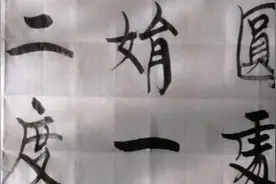 圓
娟一
二度